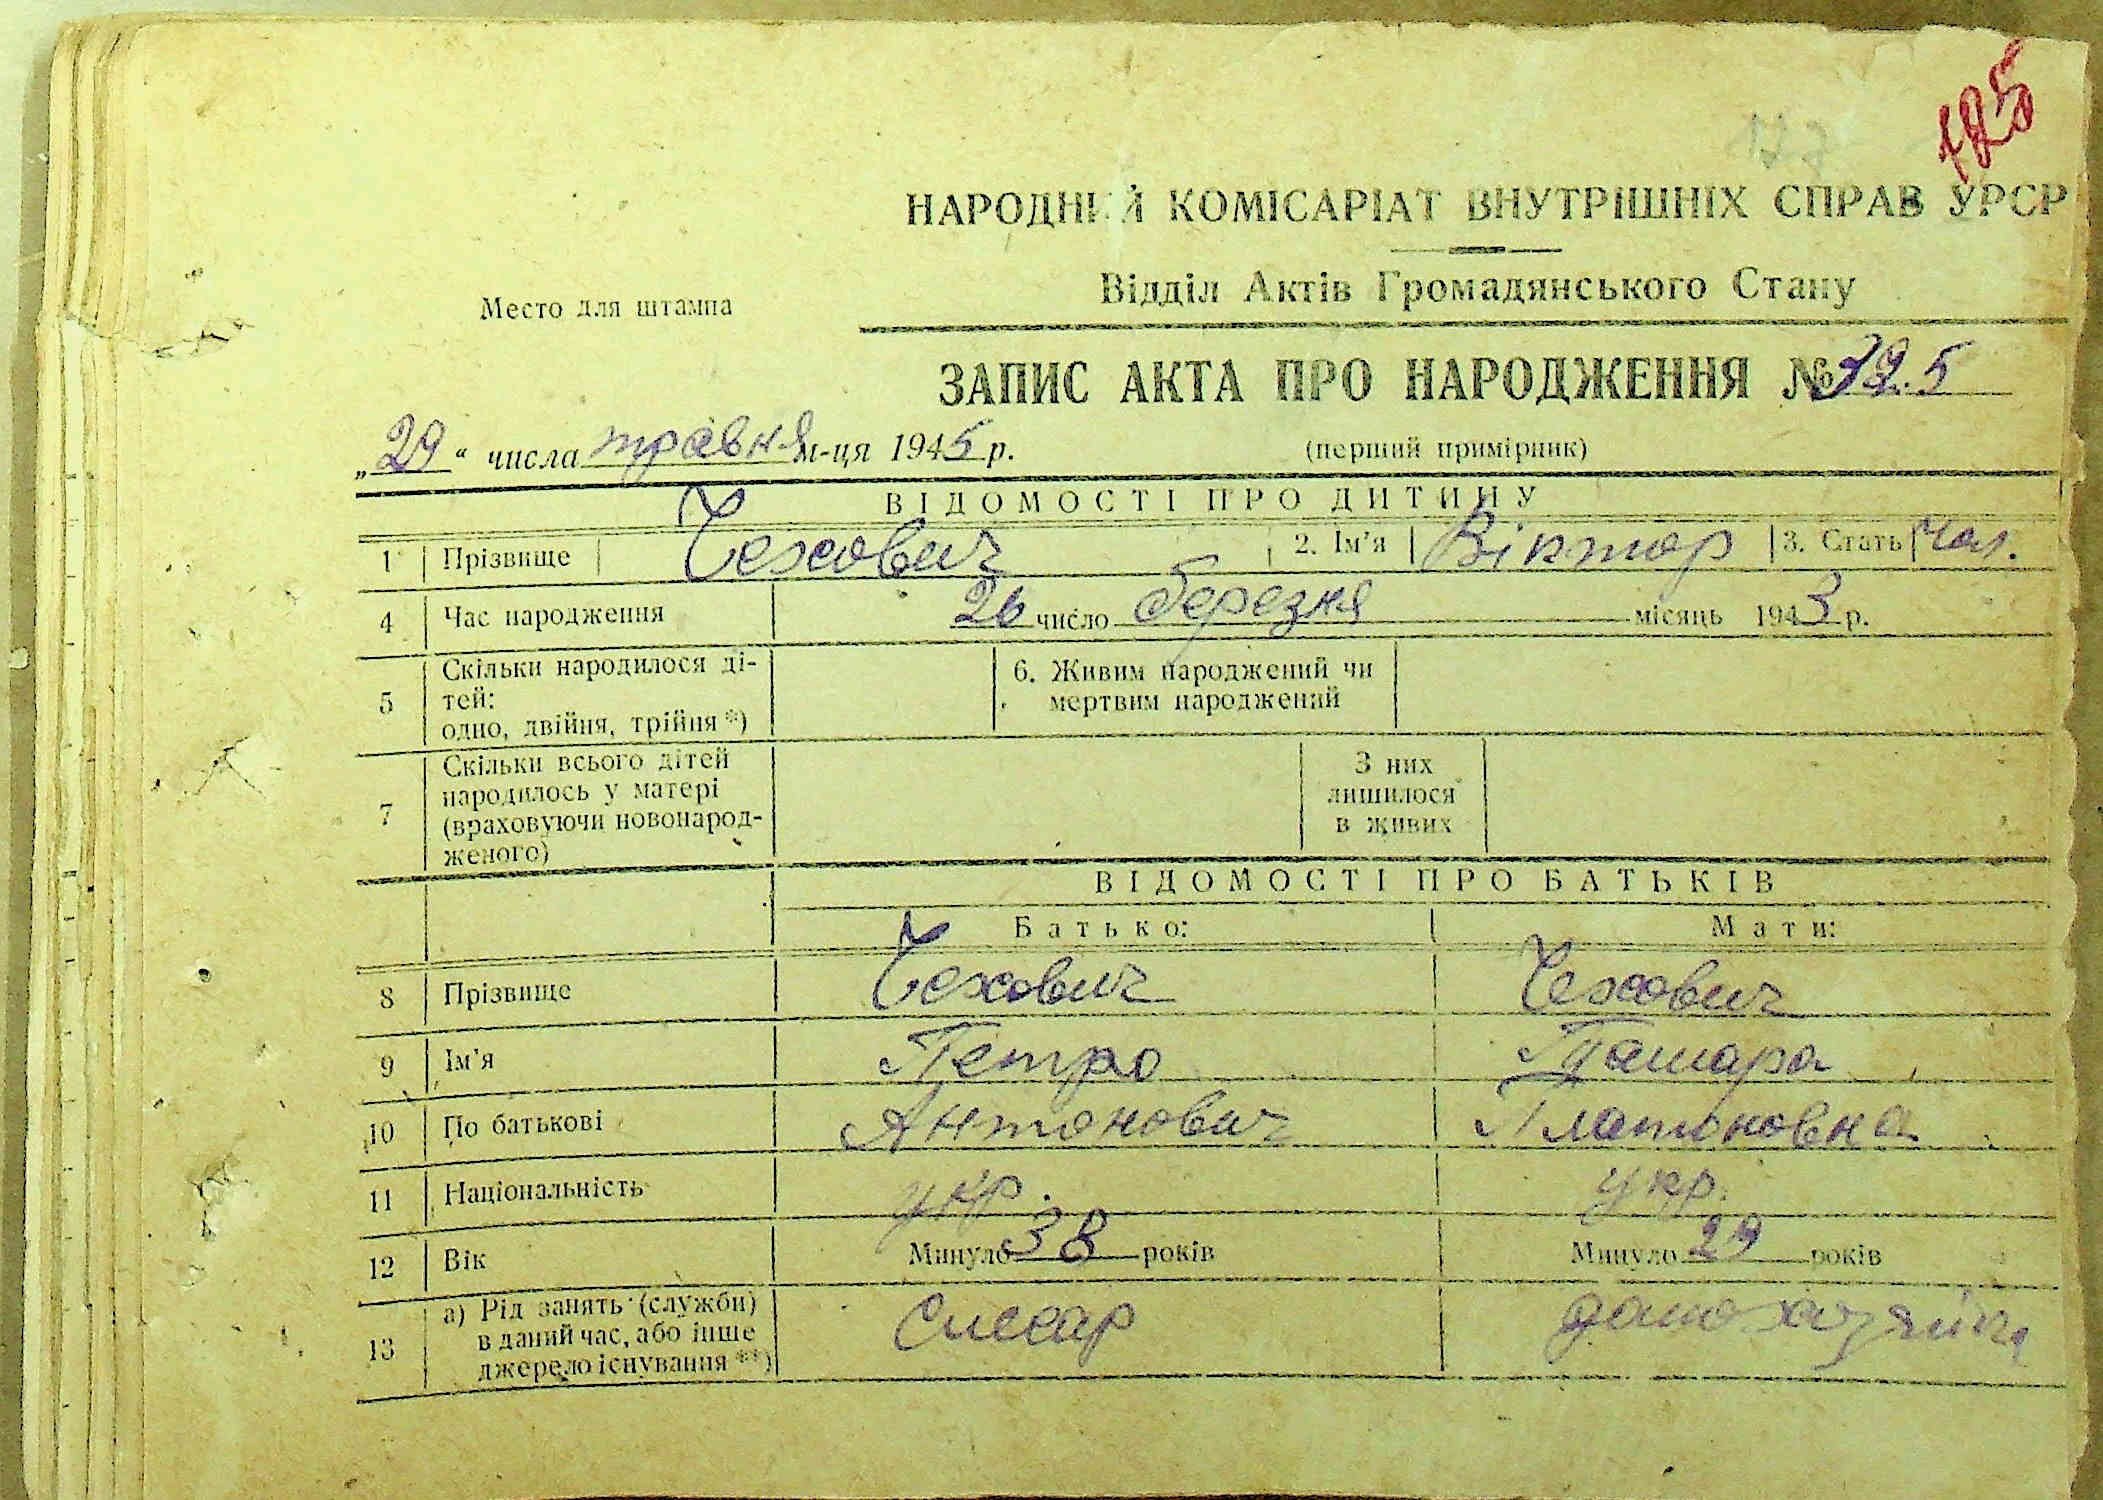 125
НАРОДНИЙ КОМІСАРІАТ ВНУТРІШНІХ СПРАВ УРСР
Відділ Актів Громадянського Стану
Место для штампа
ЗАПИС АКТА ПРО НАРОДЖЕННЯ № 125
„29“ числа травня м-ця 1945 р. (перший примірник)
ВІДОМОСТІ ПРО ДИТИНУ
1 Прізвище Чехович 2. Ім'я Віктор 3. Стать Чол.
4 Час народження 26 число березня місяць 1943 р.
5 Скільки народилося ді-
тей:
одно, двійня, трійня *)
6. Живим народжений чи
мертвим народжений
7 Скільки всього дітей
народилось у матері
(враховуючи новонарод-
женого)
З них
лишилося
в живих
ВІДОМОСТІ ПРО БАТЬКІВ
Батько: Мати:
8 Прізвище Чехович Чехович
9 Ім'я Петро Тамара
10 По батькові Антонович Платоновна
11 Національність укр. укр.
12 Вік Минуло 38 років Минуло 29 років
13 а) Рід занять (служби)
в даний час, або інше
джерело існування **)
Слесар домохазяйка